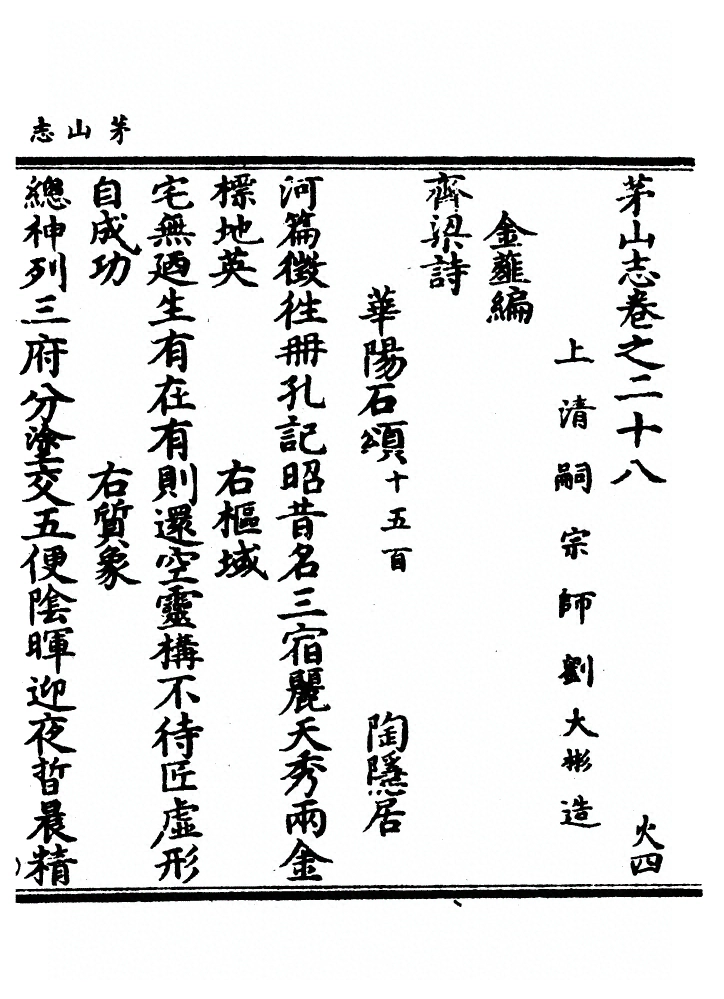 茅山志
茅山志卷之二十八 火四
上清嗣宗師劉大彬造
金薤編
齊梁詩
華陽石頌十五百 陶隱居
河篇徵往冊孔記昭昔名三宿麗天秀兩金
標地英 右樞域
宅無廼生有在有則還空靈構不待匠虛形
自成功 右質象
總神列三府分塗交五便陰暉迎夜晢晨精